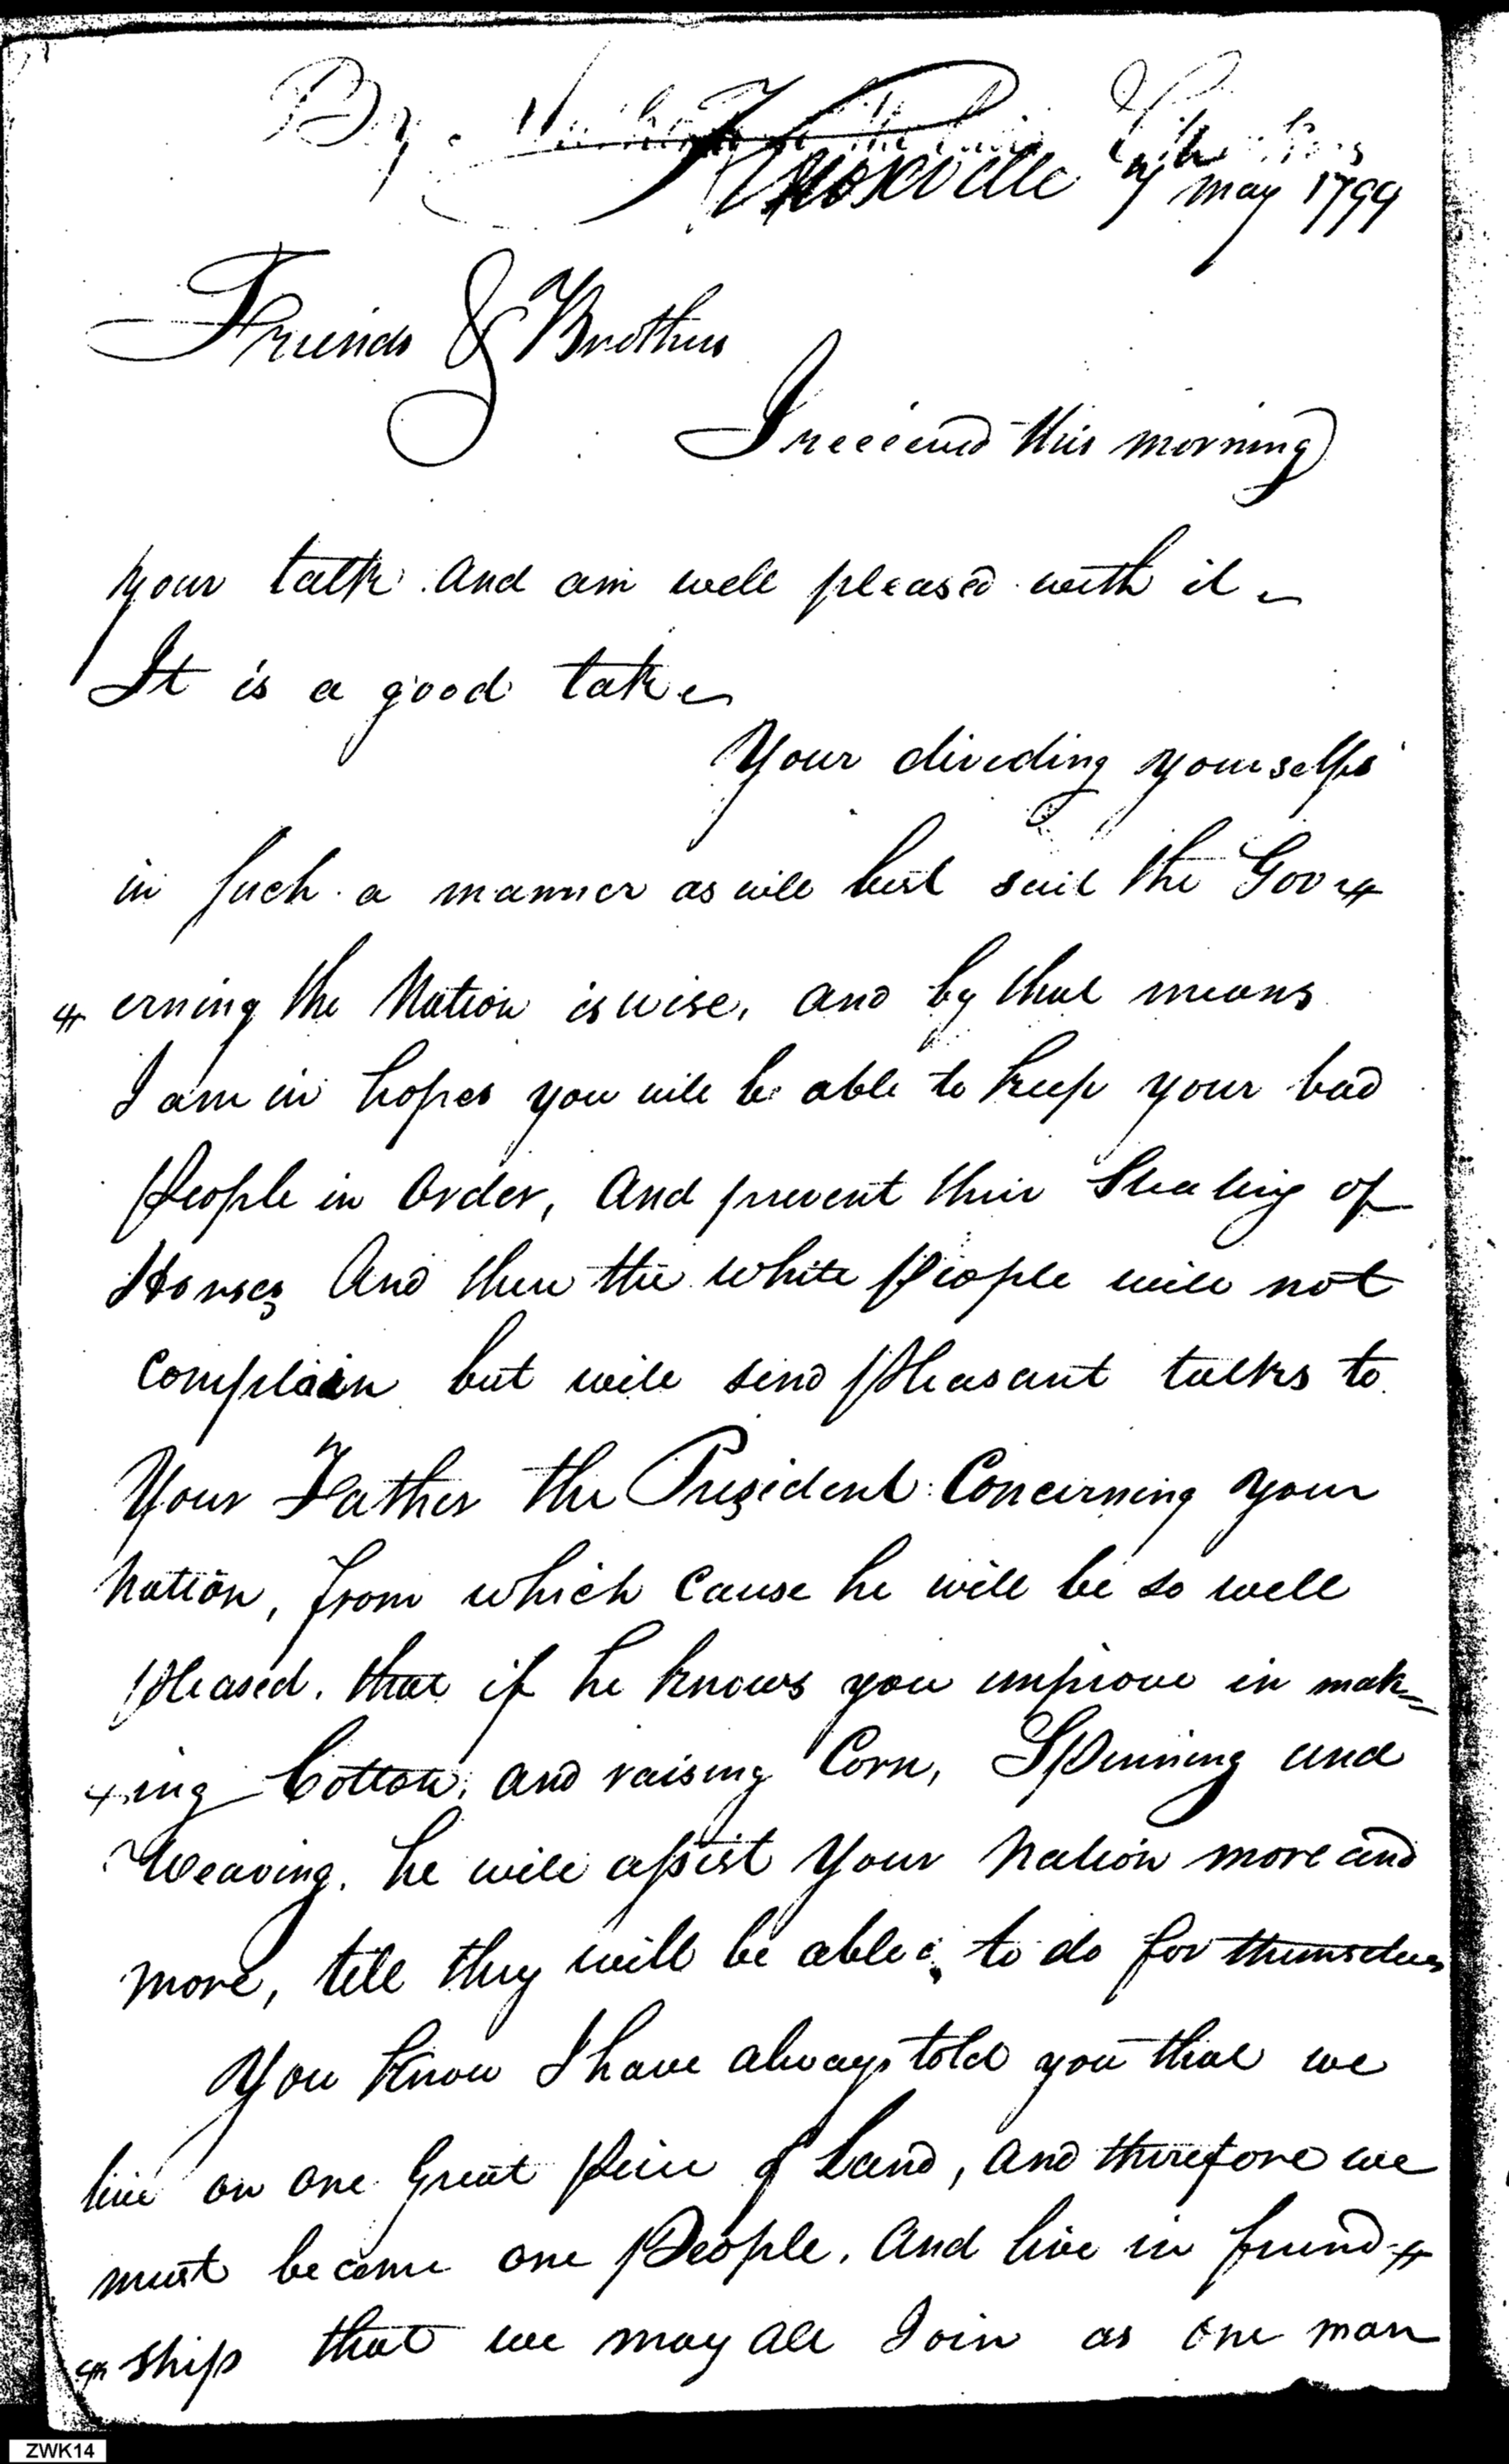 Knoxville 7th may 1799
Friends & Brothers
I received this morning
your talk and am well pleased with it
It is a good talk
Your dividing yourselfs
in such a manner as will best suit the Gov=
=erning the Nation is wise, and by that means
I am in hopes you will be able to keep your bad
People in Order, And prevent their Stealing of
Horses And then the white People will not
Complain but will send Pleasant talks to
Your Father the President Concerning your
Nation, from which Cause he will be so well
Pleased, that if he knows you improve in mak=
=ing Cotton, and raising Corn, Spinning and
Weaving, he will assist Your Nation more and
more, till they will be able to do for themselves
You know I have always told you that we
live on one Great Piece of Land, and therefore we
must become one People, And live in friend=
=ship that we may all Join as one man
ZWK14